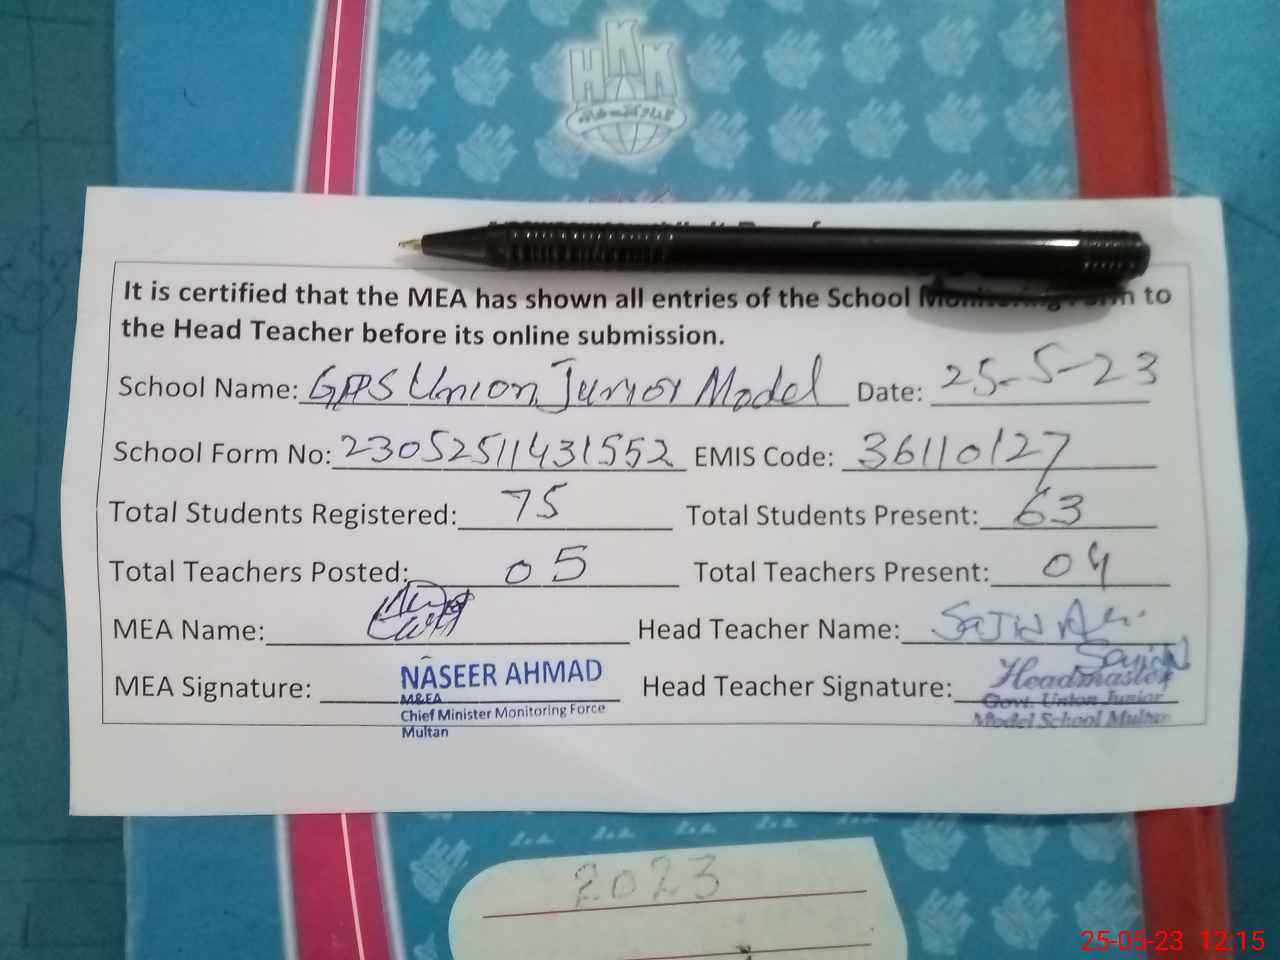 HKK
It is certified that the MEA has shown all entries of the School Monitoring Form to
the Head Teacher before its online submission.
School Name: GPS Union Junior Model Date: 25-5-23
School Form No: 23052511431552 EMIS Code: 36110127
Total Students Registered: 75 Total Students Present: 63
Total Teachers Posted: 05 Total Teachers Present: 04
MEA Name: Head Teacher Name:
MEA Signature: NASEER AHMAD Head Teacher Signature: Headmaster
M&EA Govt. Union Junior
Chief Minister Monitoring Force Model School Multan
Multan
2023
25-05-23 12:15